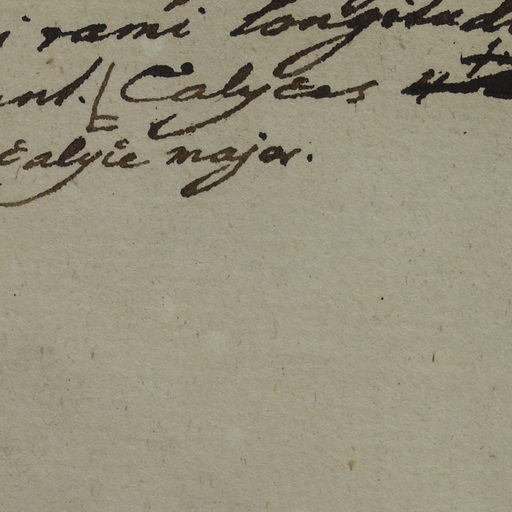 i rami longitud
ant. Calyces
calyce major.